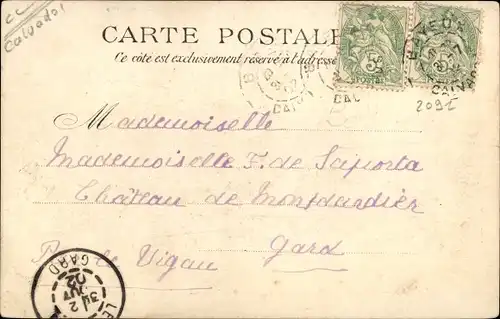 Calvados
CARTE POSTALE
Ce côté est exclusivement réservé à l'adresse
5
5
BAYEUX
CALVADOS
2091
Mademoiselle
Mademoiselle F. de Saporta
Château de Montdardier
Par Le Vigan Gard
LE
GARD
02